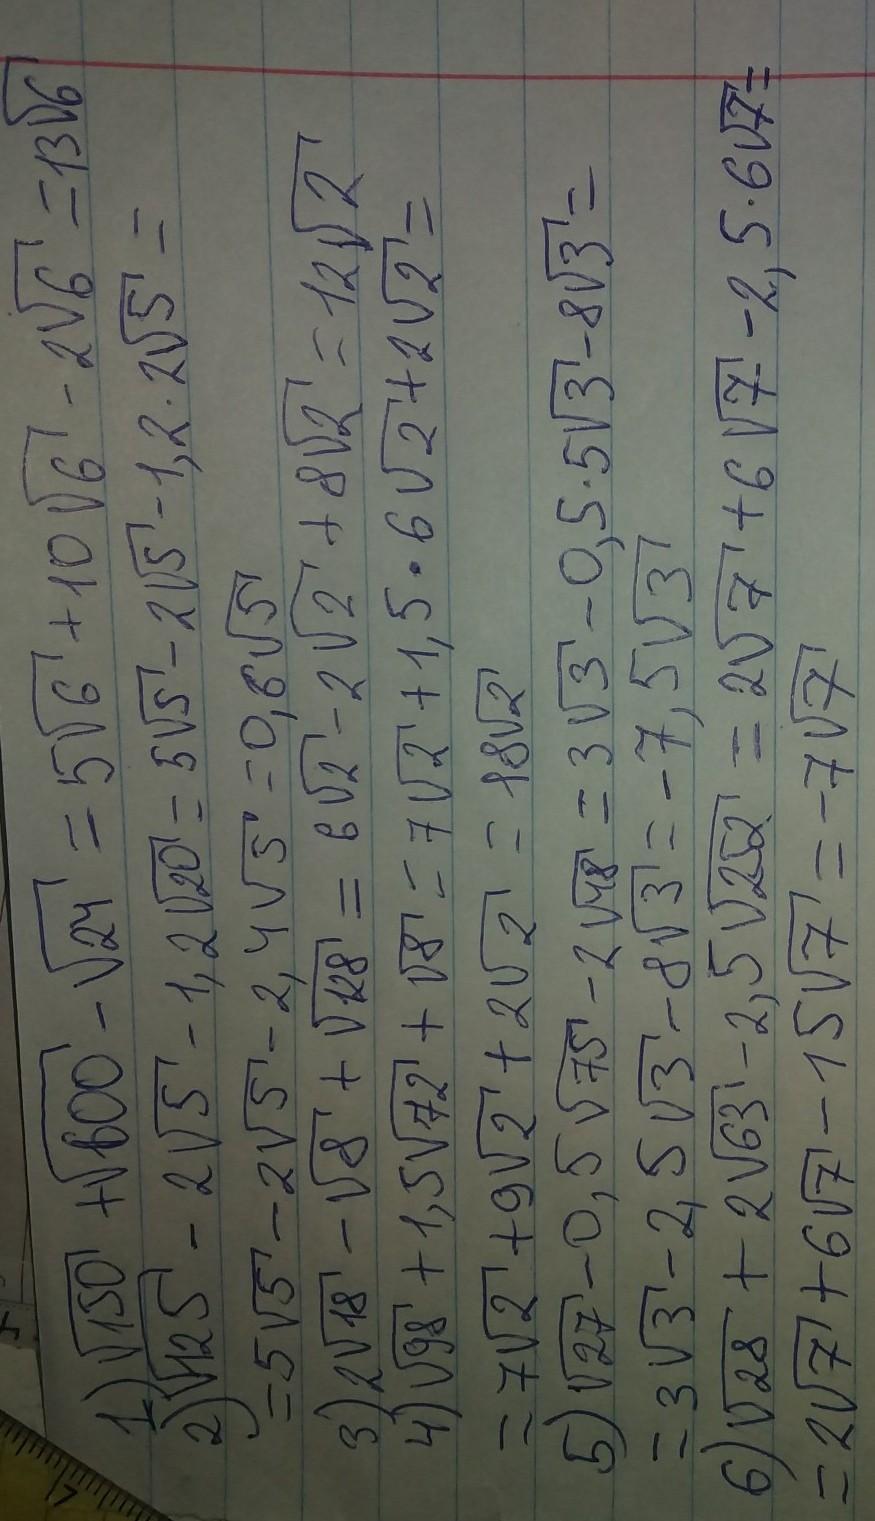 1) √150 + √600 - √24 = 5√6 + 10√6 - 2√6 = 13√6
2) √125 - 2√5 - 1,2√20 = 5√5 - 2√5 - 1,2·2√5 =
= 5√5 - 2√5 - 2,4√5 = 0,6√5
3) 2√18 - √8 + √128 = 6√2 - 2√2 + 8√2 = 12√2
4) √98 + 1,5√72 + √8 = 7√2 + 1,5·6√2 + 2√2 =
= 7√2 + 9√2 + 2√2 = 18√2
5) √27 - 0,5√75 - 2√48 = 3√3 - 0,5·5√3 - 8√3 =
= 3√3 - 2,5√3 - 8√3 = -7,5√3
6) √28 + 2√63 - 2,5√252 = 2√7 + 6√7 - 2,5·6√7 =
= 2√7 + 6√7 - 15√7 = -7√7